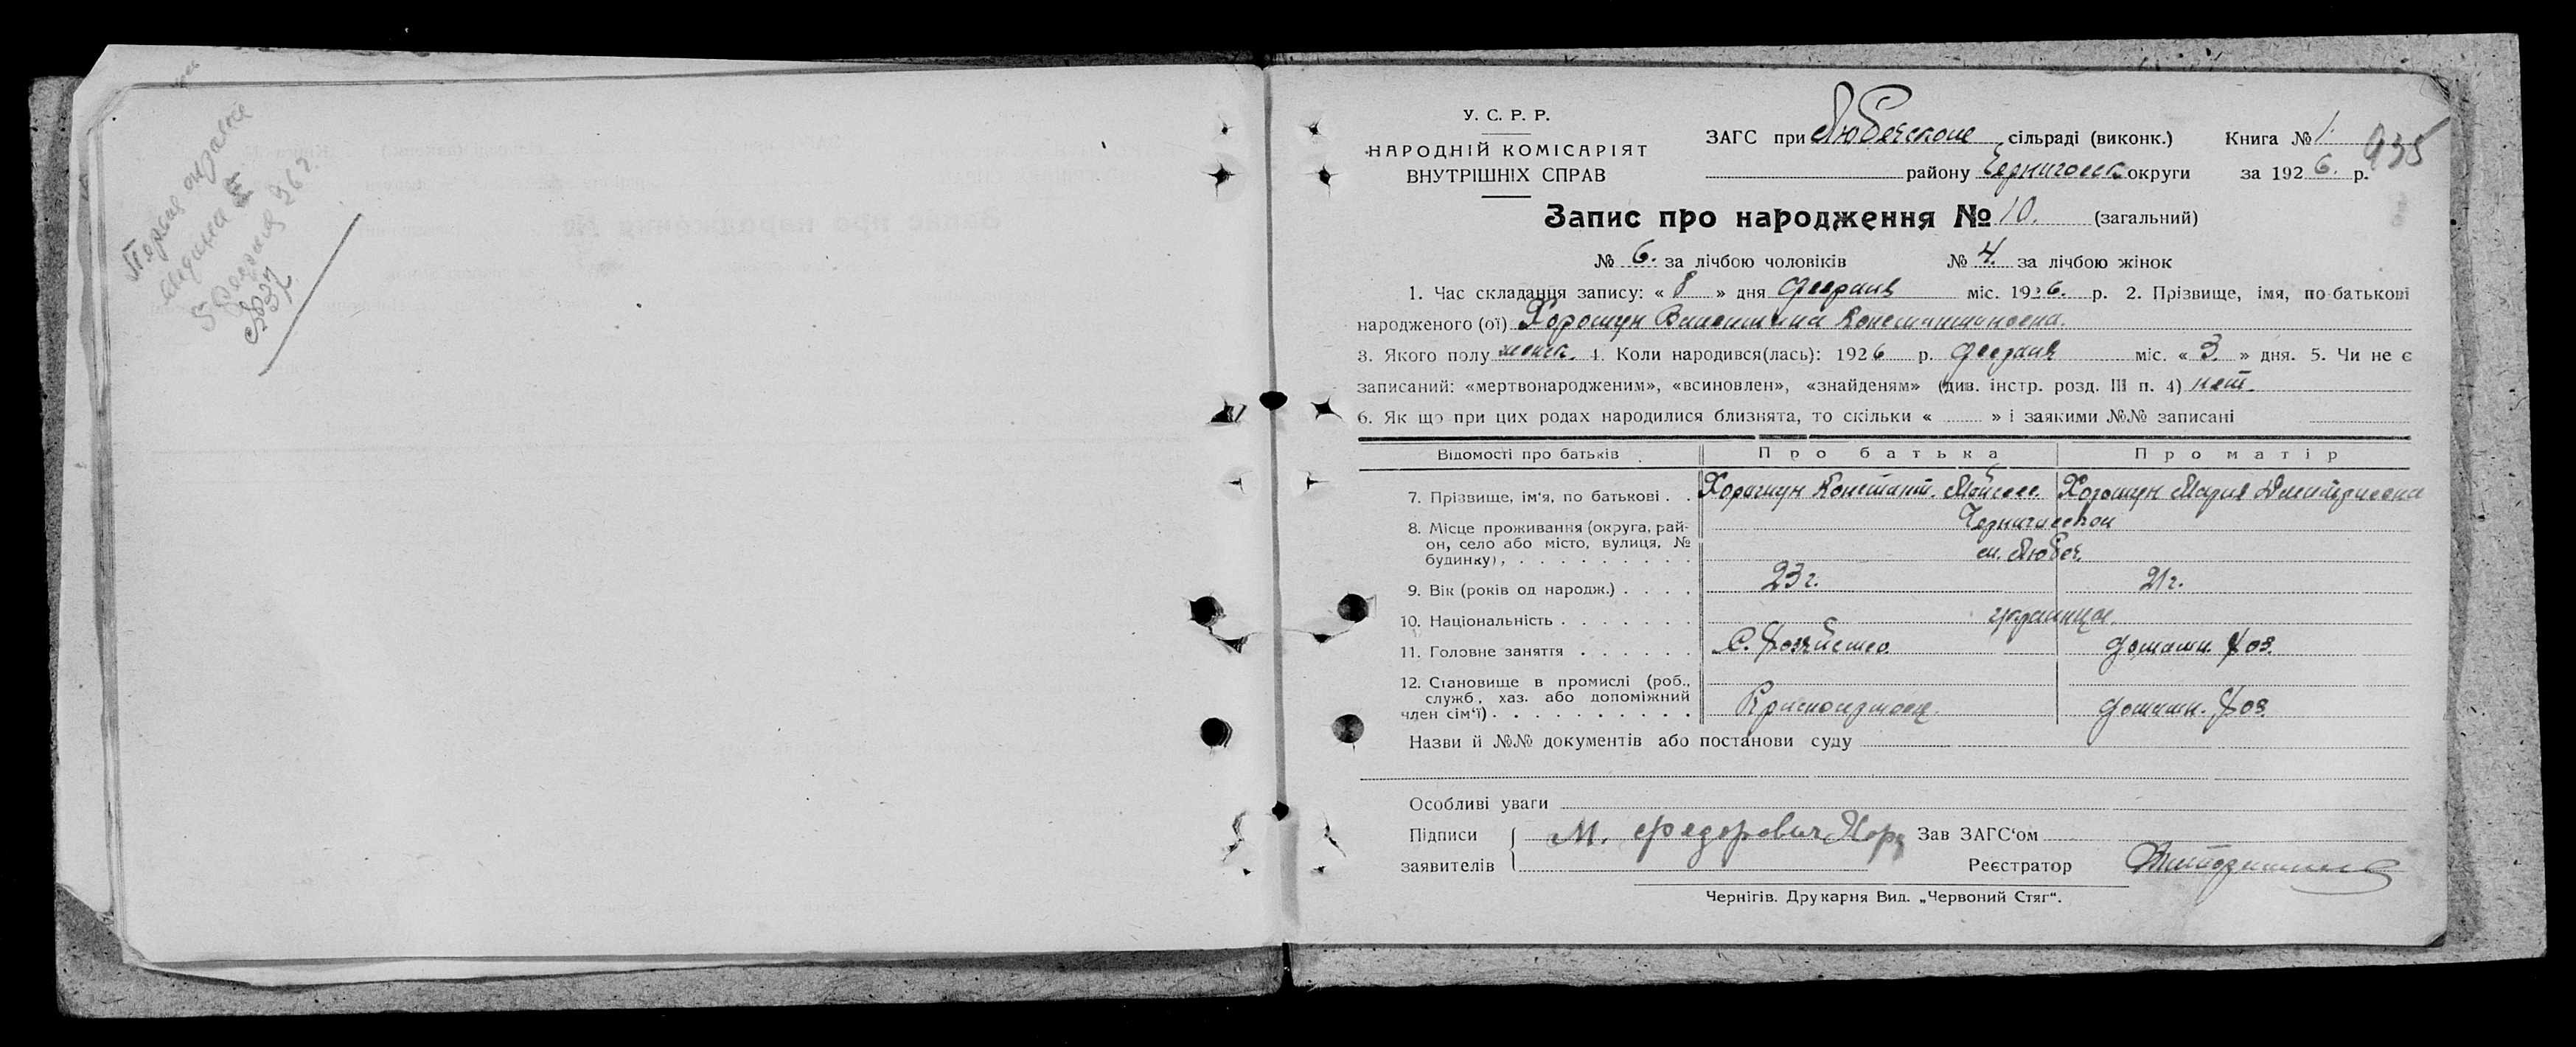 Первая
У. С. Р. Р.
НАРОДНІЙ КОМІСАРІЯТ
ВНУТРІШНІХ СПРАВ
ЗАГС при Любечском сільраді (виконк.) Книга № 1.
935
району Черниговск округи за 1926. р.
Запис про народження № 10. (загальний)
№ 6. за лічбою чоловіків № 4. за лічбою жінок
1. Час складання запису: « 8 » дня февраля міс. 1926. р. 2. Прізвище, імя, по-батькові
народженого (ої) Хорошун Валентина Константиновна.
3. Якого полу женск. 4. Коли народився(лась): 1926 р. февраля міс. « 3. » дня. 5. Чи не є
записаний: «мертвонародженим», «всиновлен», «знайденям» (див. інстр. розд. III п. 4) нет.
6. Як що при цих родах народилися близнята, то скільки « » і заякими №№ записані
Відомості про батьків Про батька Про матір
7. Прізвище, ім'я, по батькові . . Хорошун Констант. Моисеев. Хорошун Мария Дмитриевна
8. Місце проживання (округа, рай- Черниговской
он, село або місто, вулиця, № м. Любеч.
будинку), . . . . . . . . . .
9. Вік (років од народж.) . . . . 23 г. 21 г.
10. Національність . . . . . . . украинцы.
11. Головне заняття . . . . . . С. Хозяйство. домашн. хоз.
12. Становище в промислі (роб.,
служб., хаз. або допоміжний
член сім'ї) . . . . . . . . . . Красноармеец. домашн. хоз.
Назви й №№ документів або постанови суду
Особливі уваги
Підписи М. Федорович Хор Зав ЗАГС'ом
заявителів Реєстратор
Чернігів. Друкарня Вид. „Червоний Стяг“.